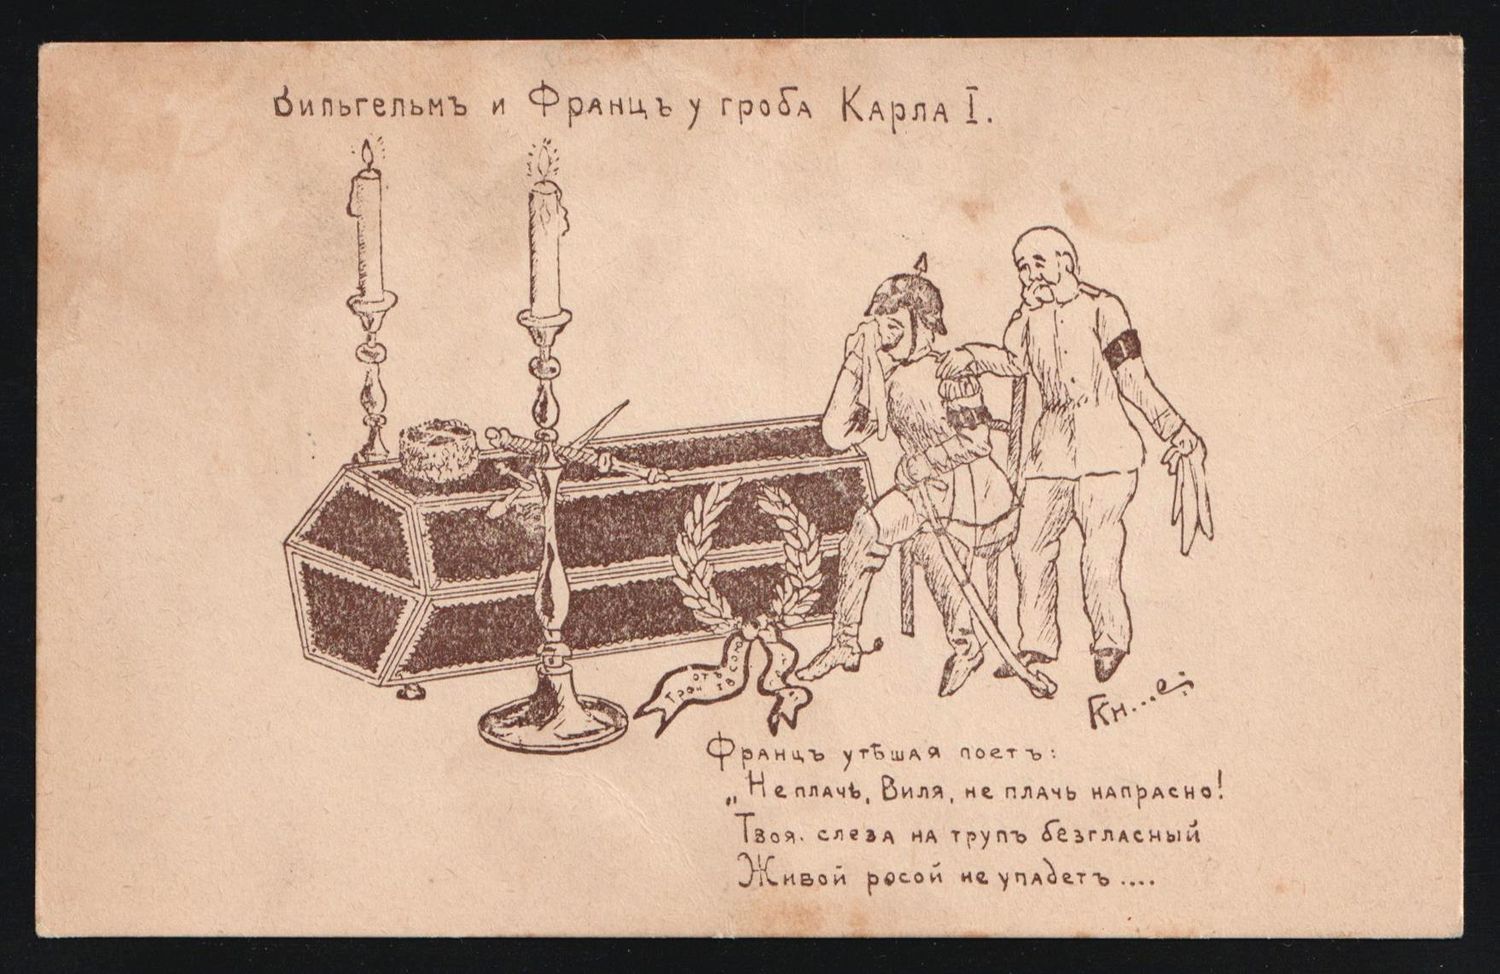 Вильгельмъ и Францъ у гроба Карла I.
отъ
Кн...е
Францъ утѣшая поетъ:
„Не плачь, Виля, не плачь напрасно!
Твоя слеза на трупъ безгласный
Живой росой не упадетъ....